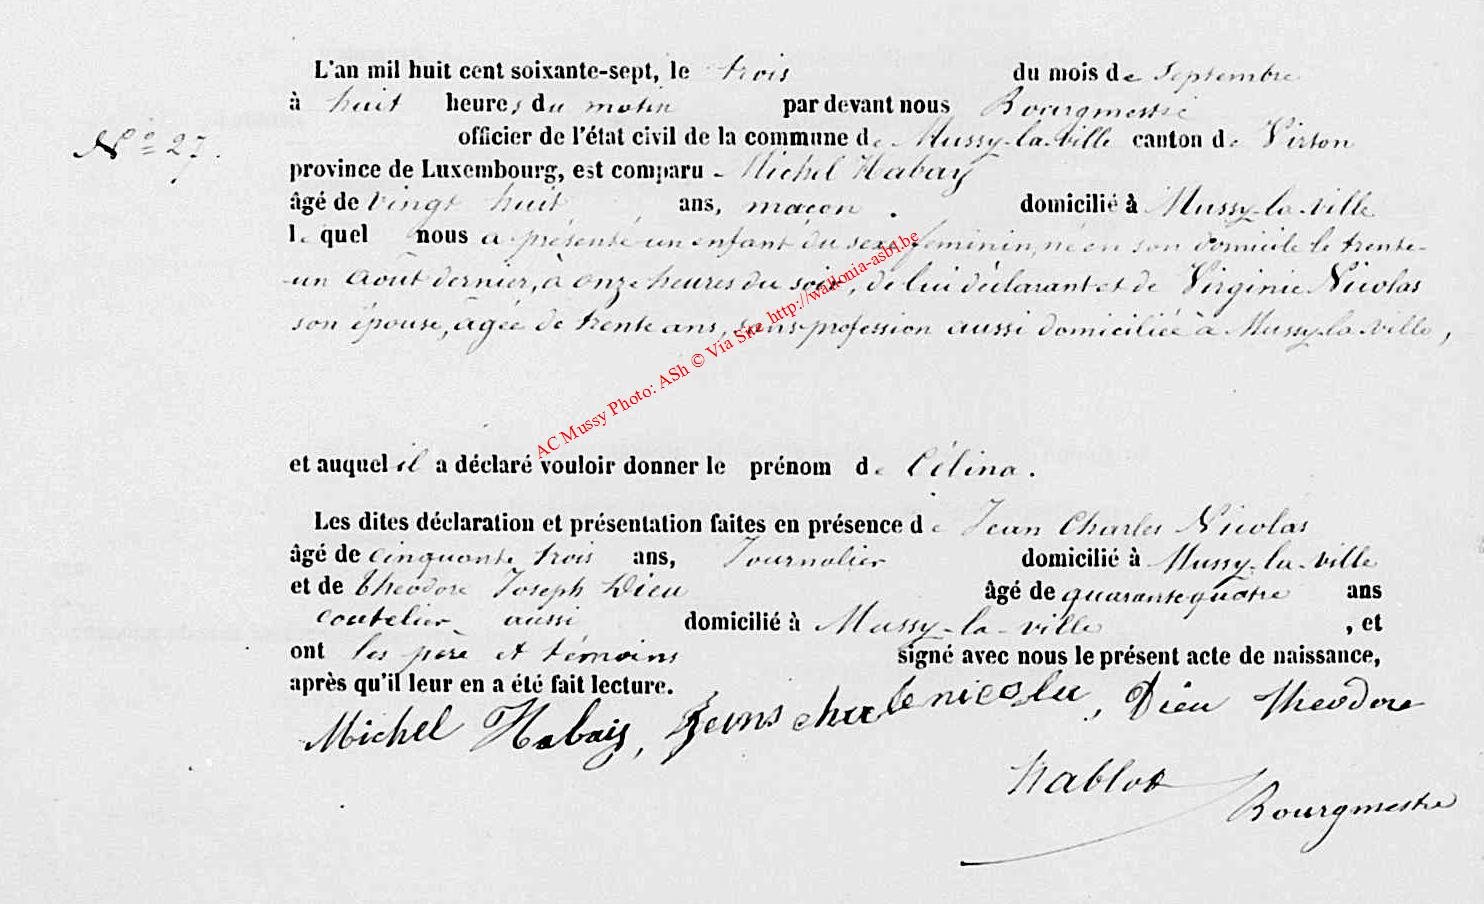 L'an mil huit cent soixante-sept, le trois du mois de Septembre
à huit heures du matin par devant nous Bourgmestre
N° 27. officier de l'état civil de la commune de Mussy-la-ville canton de Virton
province de Luxembourg, est comparu Michel Habay
âgé de vingt huit, ans, maçon. domicilié à Mussy-la-ville
le quel nous a présenté un enfant du sexe feminin, né en son domicile le trente-
un Août dernier, à onze heures du soir, de lui déclarant et de Virginie Nicolas
son épouse, âgée de trente ans, sans profession aussi domiciliée à Mussy-la-ville,
AC Mussy Photo: ASh © Via Site http://wallonia-asbl.be
et auquel il a déclaré vouloir donner le prénom de Célina.
Les dites déclaration et présentation faites en présence de Jean Charles Nicolas
âgé de cinquante trois ans, Journalier domicilié à Mussy-la-ville
et de théodore Joseph Dieu âgé de quarante quatre ans
coutelier aussi domicilié à Mussy-la-ville , et
ont les père et témoins signé avec nous le présent acte de naissance,
après qu'il leur en a été fait lecture.
Michel Habay, nicola, Dieu théodore
Nablot
Bourgmestre